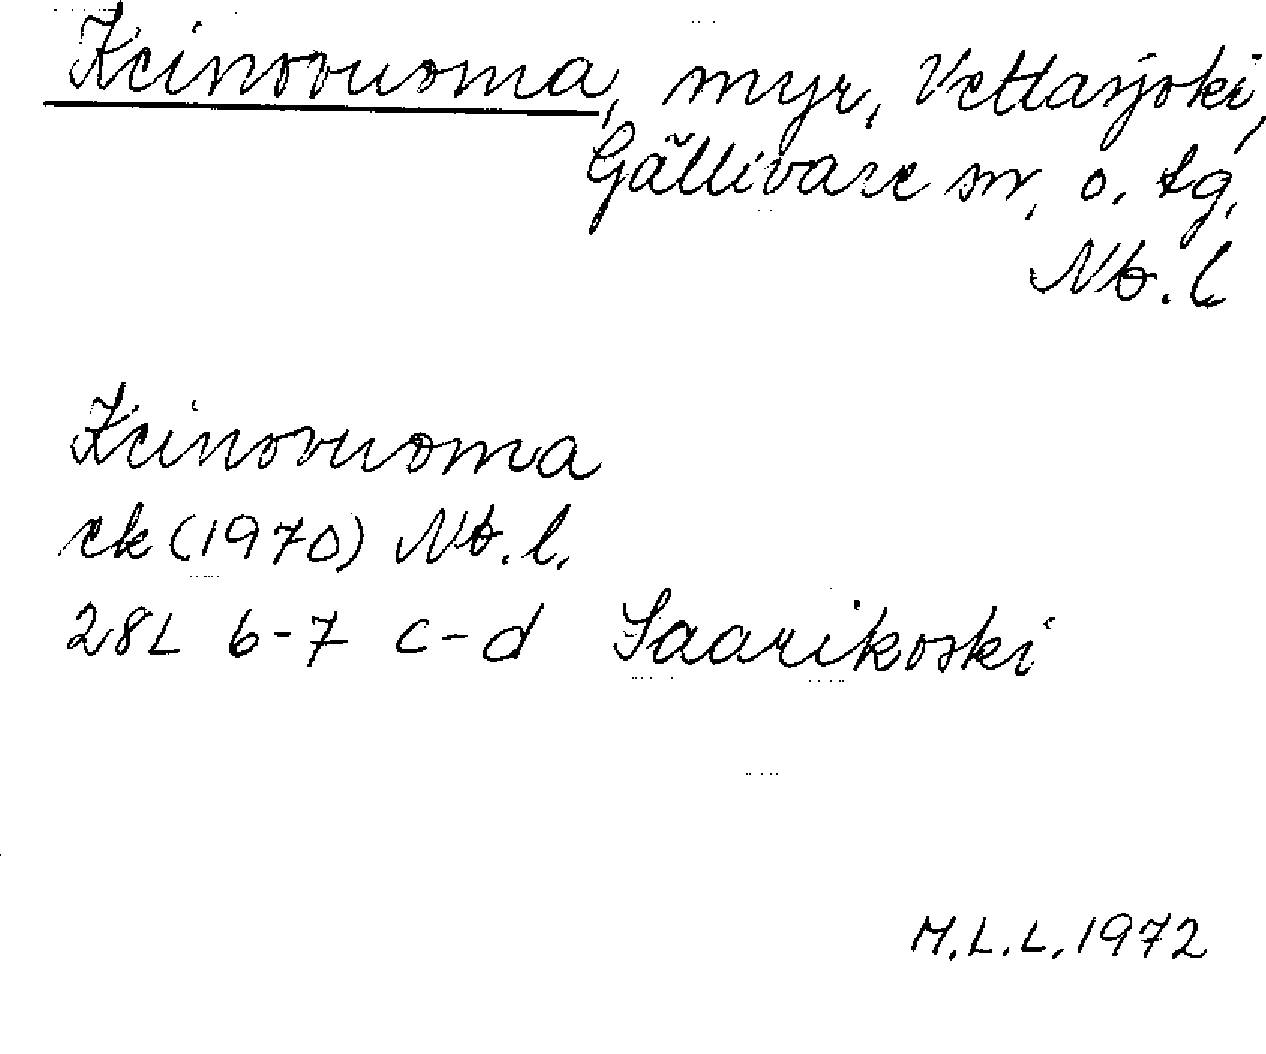 Keinovuoma, myr, Vettasjoki,
Gällivare sn, o. tg,
Nb. l
Keinovuoma
ek (1970) Nb. l.
28L 6-7 c-d Saarikoski
M.L.L. 1972